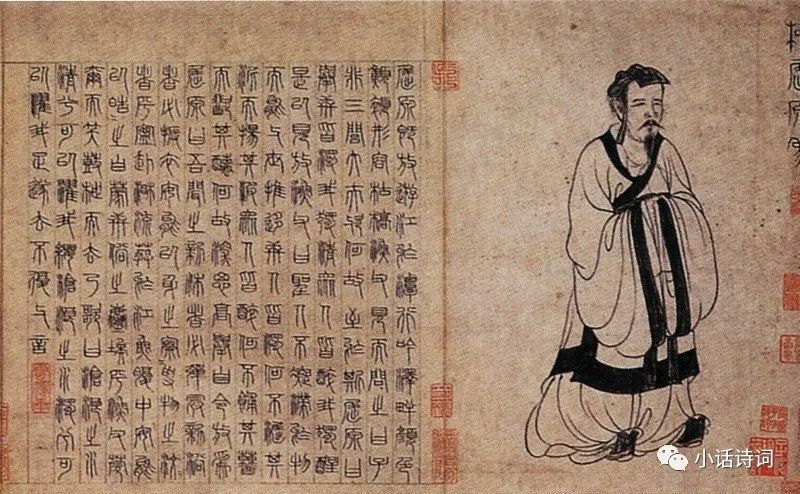 屈原像
屈原既放游江於潭行吟澤畔顏色
憔悴形容枯槁漁父見而問之曰子
非三閭大夫與何故至於斯屈原曰
舉世皆濁我獨清衆人皆醉我獨醒
是以見放漁父曰聖人不凝滯於物
而能與世推移世人皆濁何不淈其
泥而揚其波衆人皆醉何不餔其糟
而歠其醨何故深思高舉自令放為
屈原曰吾聞之新沐者必彈冠新浴
者必振衣安能以身之察受物之汶
者乎寧赴湘流葬於江魚腹中安能
以皓之白蒙世俗之塵埃乎漁父莞
爾而笑鼓枻而去乃歌曰滄浪之水
清兮可以濯我纓滄浪之水濁兮可
以濯我足遂去不復與言
小话诗词